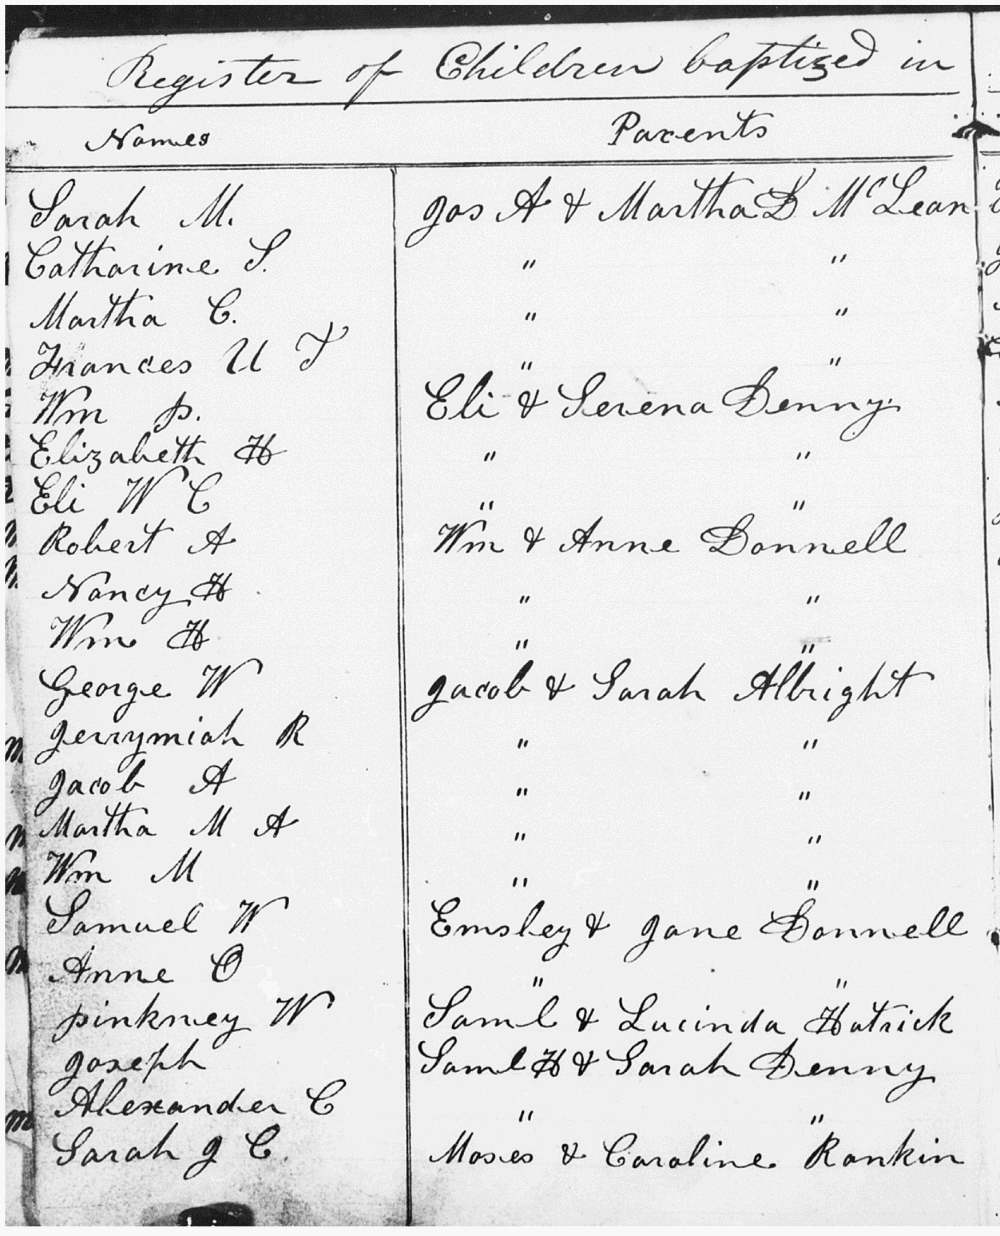 Register of Children baptized in
Names Parents
Sarah M. Jas A & Martha D McLean
Catharine S. " "
Martha C. " "
Frances U T " "
Wm P. Eli & Serena Denny
Elizabeth H " "
Eli W C " "
Robert A Wm & Anne Donnell
Nancy H " "
Wm H " "
George W Jacob & Sarah Albright
Jerrymiah R " "
Jacob A " "
Martha M A " "
Wm M " "
Samuel W Emsley & Jane Donnell
Anne O " "
Pinkney W Saml & Lucinda Hatrick
Joseph Saml H & Sarah Denny
Alexander C " "
Sarah J C. Moses & Caroline Rankin